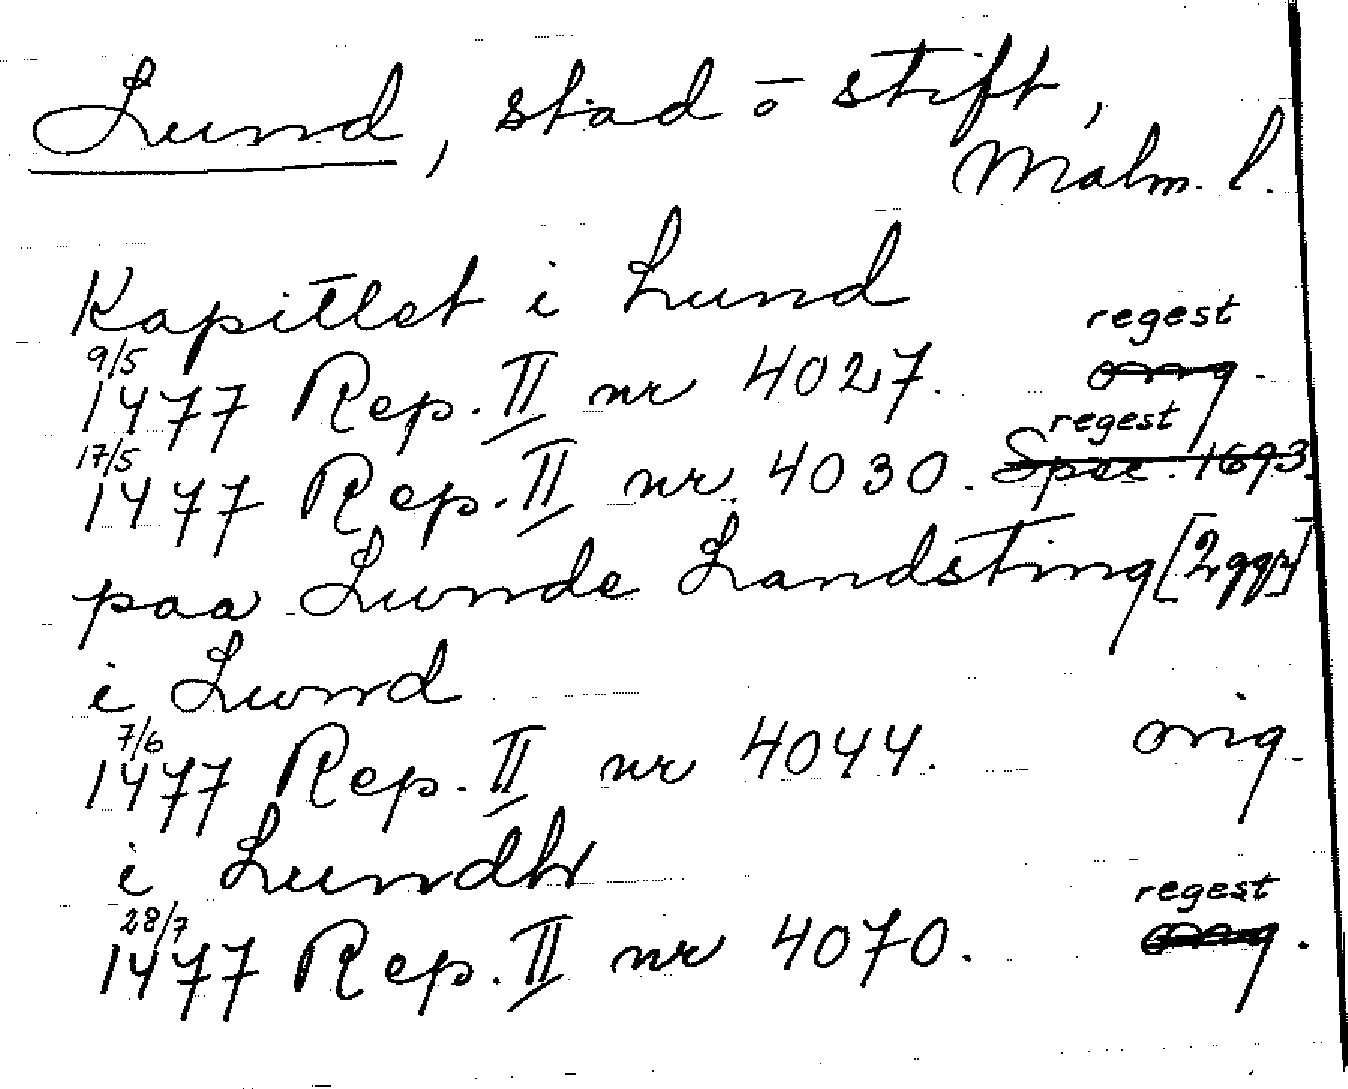 Lund, stad o stift,
Malm. l.
Kapitlet i Lund
regest
9/5
1477 Rep. II nr 4027. orig.
regest
17/5
1477 Rep. II nr 4030. Spec. 1693.
paa Lunde Landsting [2 ggr]
i Lund
7/6
1477 Rep. II nr 4044. orig.
i Lundh
regest
28/7
1477 Rep. II nr 4070. orig.